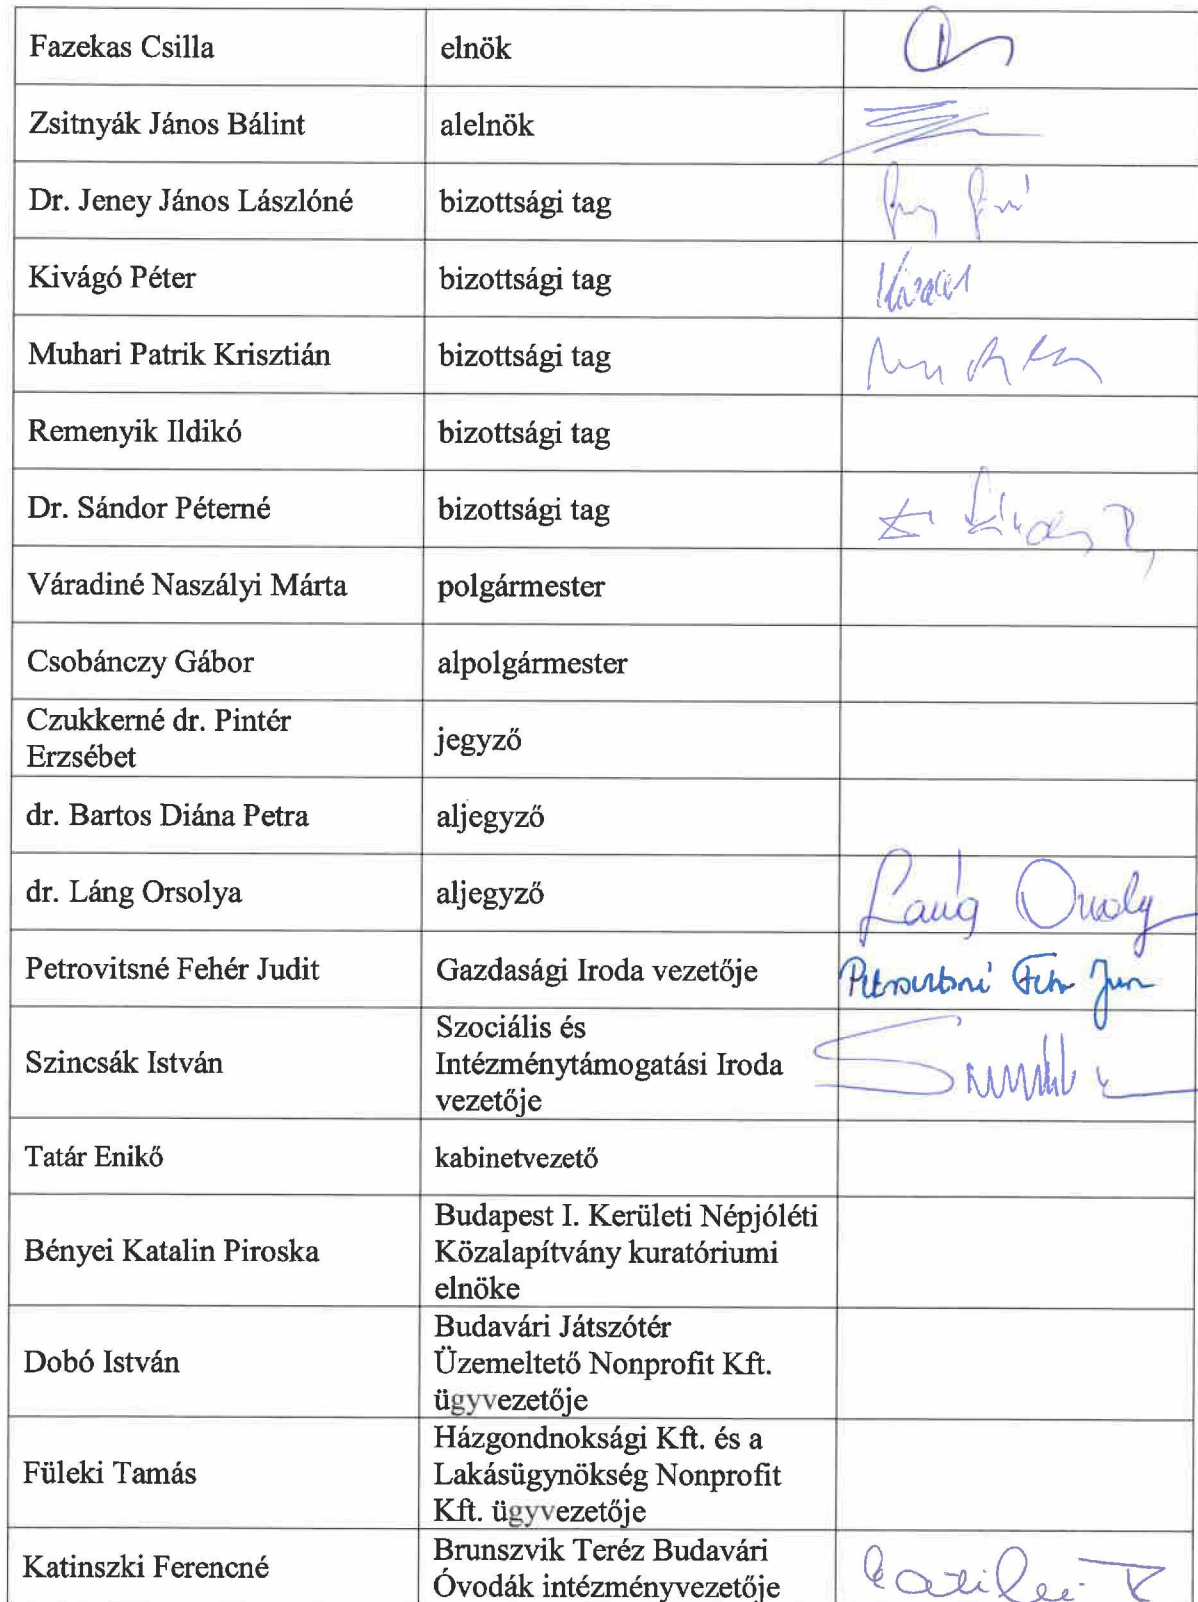 Fazekas Csilla elnök
Zsitnyák János Bálint alelnök
Dr. Jeney János Lászlóné bizottsági tag
Kivágó Péter bizottsági tag
Muhari Patrik Krisztián bizottsági tag
Remenyik Ildikó bizottsági tag
Dr. Sándor Péterné bizottsági tag
Váradiné Naszályi Márta polgármester
Csobánczy Gábor alpolgármester
Czukkerné dr. Pintér
Erzsébet
jegyző
dr. Bartos Diána Petra aljegyző
dr. Láng Orsolya aljegyző Láng Orsoly
Petrovitsné Fehér Judit Gazdasági Iroda vezetője
Szincsák István
Szociális és
Intézménytámogatási Iroda
vezetője
Tatár Enikő kabinetvezető
Bényei Katalin Piroska
Budapest I. Kerületi Népjóléti
Közalapítvány kuratóriumi
elnöke
Dobó István
Budavári Játszótér
Üzemeltető Nonprofit Kft.
ügyvezetője
Füleki Tamás
Házgondnoksági Kft. és a
Lakásügynökség Nonprofit
Kft. ügyvezetője
Katinszki Ferencné
Brunszvik Teréz Budavári
Óvodák intézményvezetője